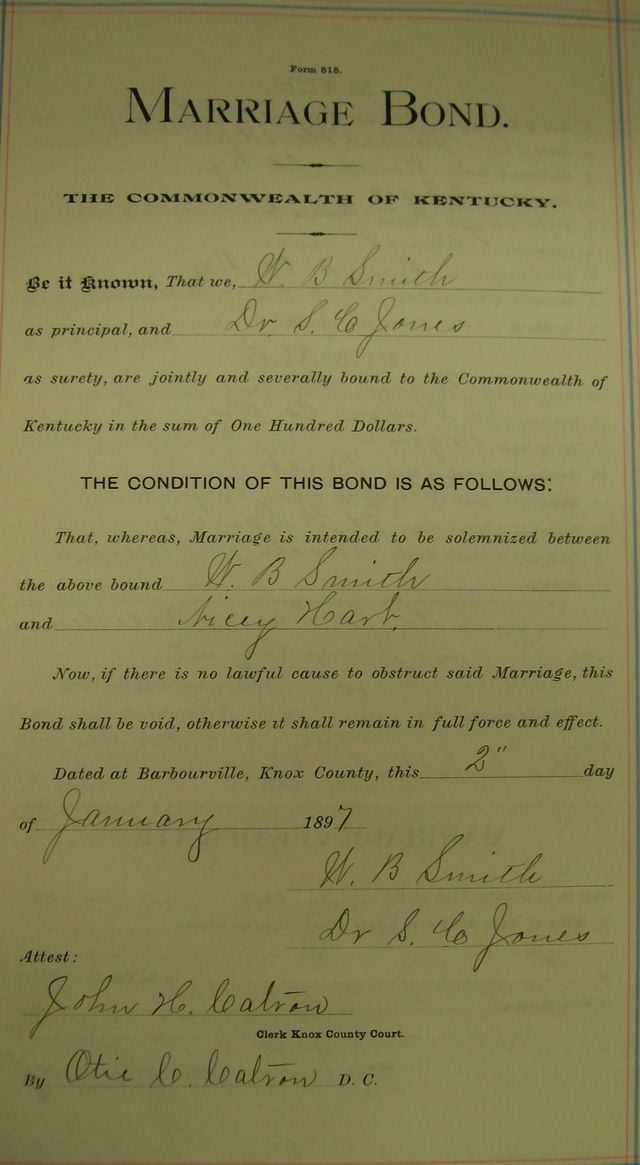 Form 515.
MARRIAGE BOND.
THE COMMONWEALTH OF KENTUCKY.
Be it Known, That we, W. B Smith
as principal, and Dr. S. C Jones
as surety, are jointly and severally bound to the Commonwealth of
Kentucky in the sum of One Hundred Dollars.
THE CONDITION OF THIS BOND IS AS FOLLOWS:
That, whereas, Marriage is intended to be solemnized between
the above bound W. B Smith
and Nicey Hart.
Now, if there is no lawful cause to obstruct said Marriage, this
Bond shall be void, otherwise it shall remain in full force and effect.
Dated at Barbourville, Knox County, this 2" day
of January 1897
W. B Smith
Dr S. C Jones
Attest:
John H. Catron
Clerk Knox County Court.
By Otie C. Catron D. C.